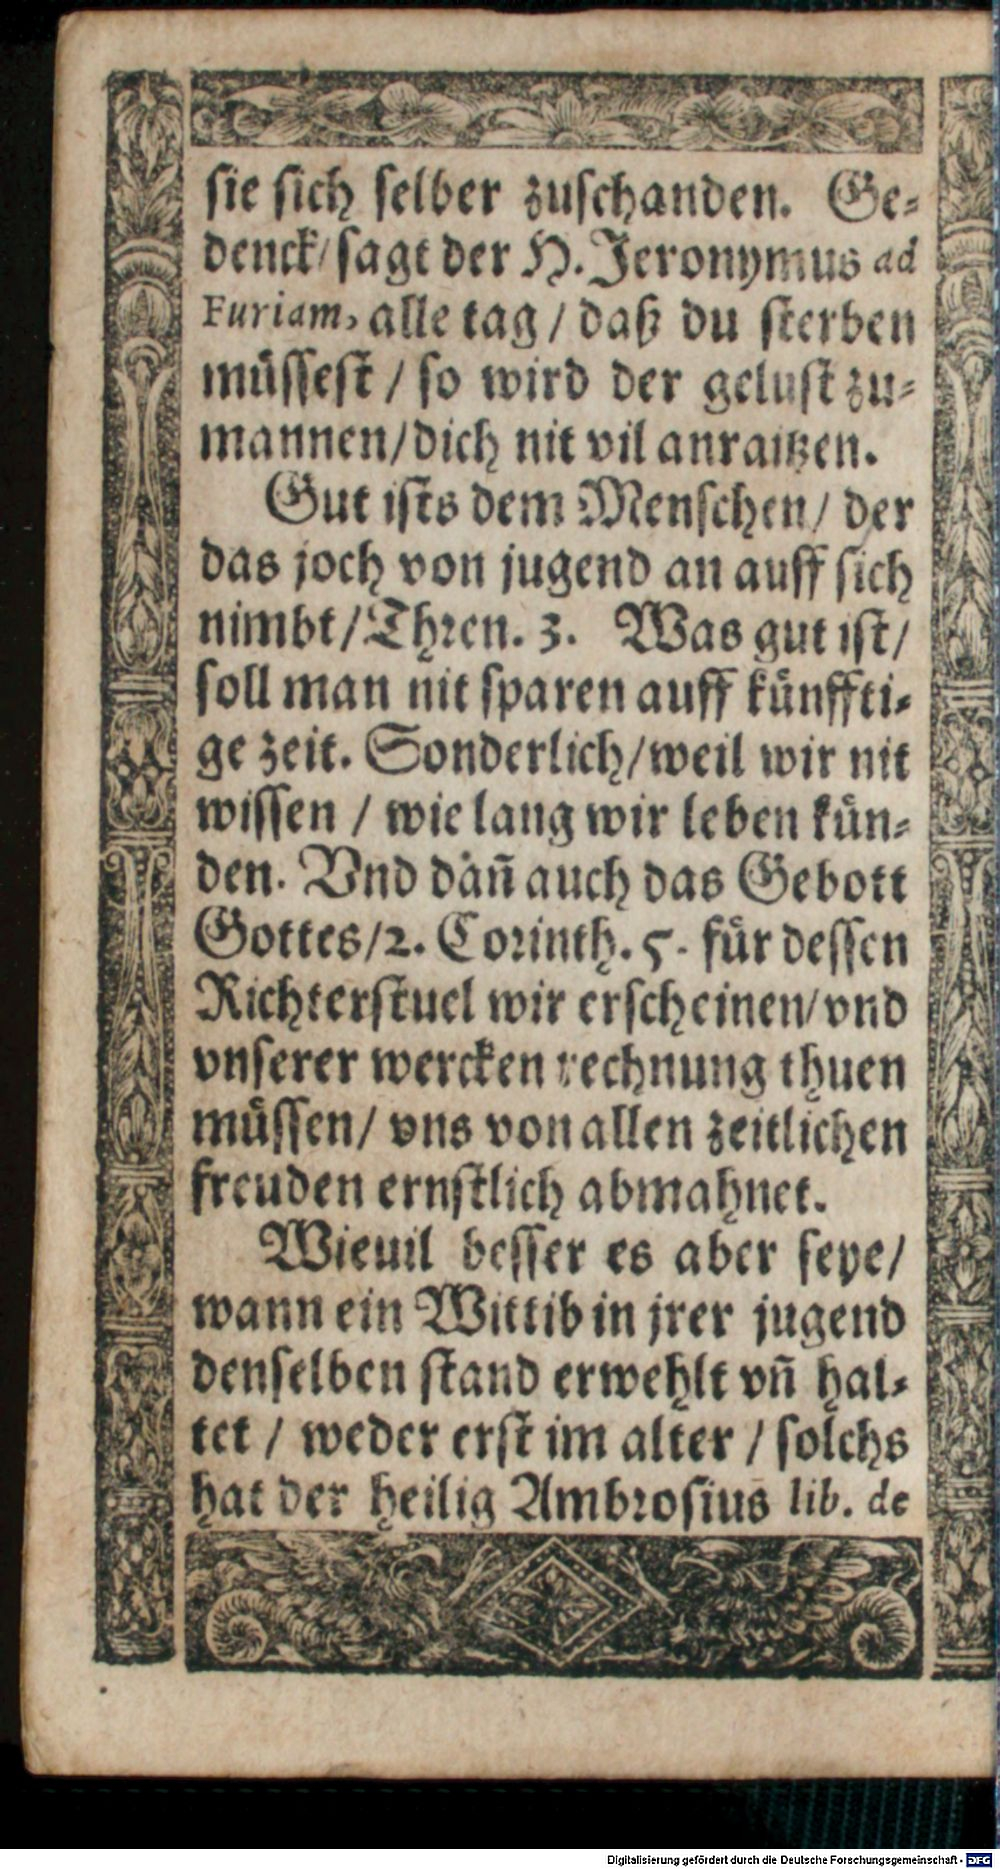 sie sich selber zuschanden. Ge-
denck/sagt der H. Jeronymus ad
Furiam, alle tag / daß du sterben
müssest / so wird der gelust zu-
mannen/dich nit vil anraitzen.
Gut ists dem Menschen/ der
das joch von jugend an auff sich
nimbt/Thren. 3. Was gut ist/
soll man nit sparen auff künffti-
ge zeit. Sonderlich/weil wir nit
wissen / wie lang wir leben kün-
den. Vnd dañ auch das Gebott
Gottes/2. Corinth. 5. für dessen
Richterstuel wir erscheinen/vnd
vnserer wercken rechnung thuen
müssen/ vns von allen zeitlichen
freuden ernstlich abmahnet.
Wieuil besser es aber seye/
wann ein Wittib in jrer jugend
denselben stand erwehlt vñ hal-
tet / weder erst im alter / solchs
hat der heilig Ambrosius lib. de
Digitalisierung gefördert durch die Deutsche Forschungsgemeinschaft - DFG